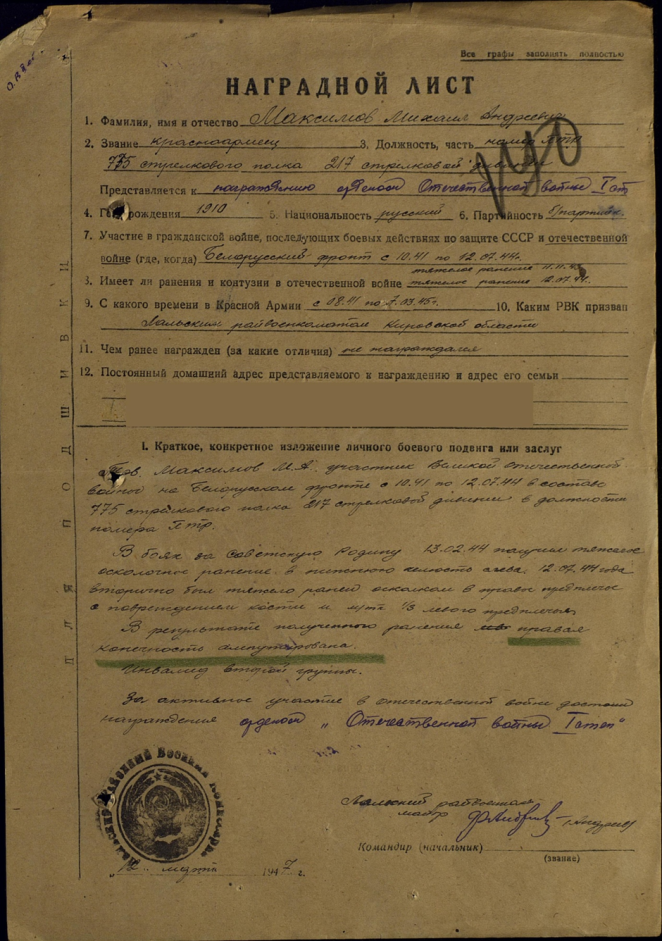 Все графы заполнять полностью
НАГРАДНОЙ ЛИСТ
1. Фамилия, имя и отчество Максимов Михаил Андреевич
2. Звание красноармеец 3. Должность, часть номер ПТР
775 стрелкового полка 217 стрелковой
Представляется к награждению орденом Отечественной войны I ст
4. Год рождения 1910 5. Национальность русский 6. Партийность
7. Участие в гражданской войне, последующих боевых действиях по защите СССР и отечественной
войне (где, когда) Белорусский фронт с 10.41 по 12.07.44
тяжелое ранение
8. Имеет ли ранения и контузии в отечественной войне тяжелое ранение 12.07.44.
9. С какого времени в Красной Армии с 08.41 по 7.03.45г. 10. Каким РВК призван
Лальским райвоенкоматом Кировской области
11. Чем ранее награжден (за какие отличия) не награждался
12. Постоянный домашний адрес представляемого к награждению и адрес его семьи
I. Краткое, конкретное изложение личного боевого подвига или заслуг
Тов. Максимов М.А. участник Великой отечественной
войны на Белорусском фронте с 10.41 по 12.07.44 в составе
775 стрелкового полка 217 стрелковой дивизии в должности
номера Птр.
В боях за Советскую Родину 13.02.44 получил тяжелое
осколочное ранение в нижнюю челюсть слева. 12.07.44 года
вторично был тяжело ранен осколком в правое предплечье
с повреждением кости и н/тр 1/3 левого предплечья.
В результате полученного ранения правая
конечность ампутирована.
Инвалид второй группы.
За активное участие в отечественной войне достоин
награждения орденом „Отечественной войны I степ"
Лальский райвоенком
майор
Командир (начальник)
(звание)
"12" марта 1947 г.
ДЛЯ ПОДШИВКИ